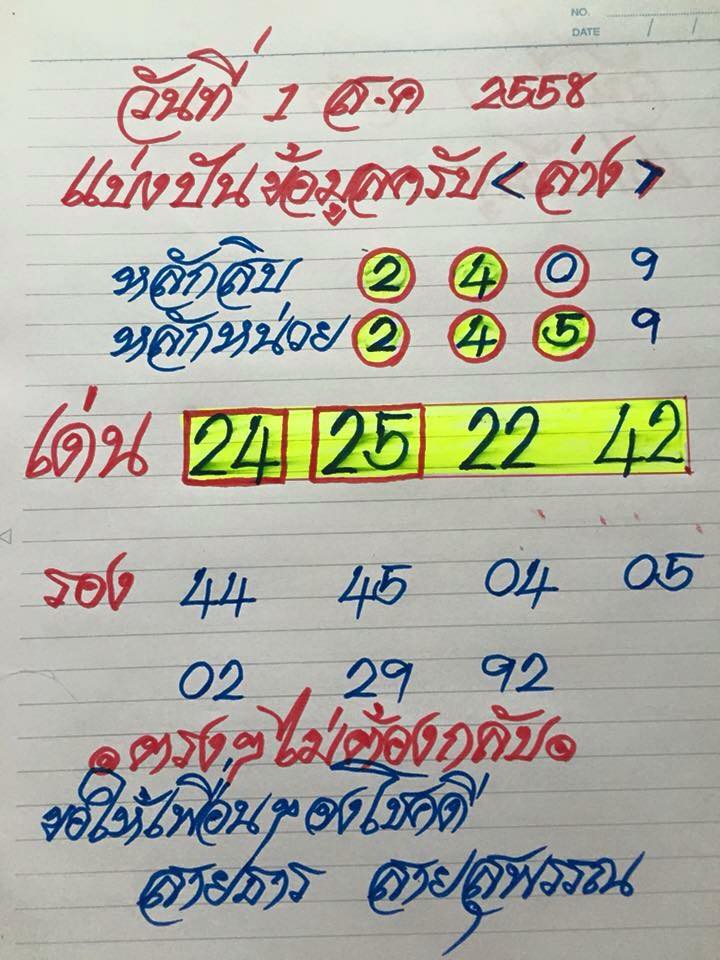 NO.
DATE / /
วันที่ 1 ส.ค 2558
แบ่งปันข้อมูลครับ < ล่าง >
หลักสิบ 2 4 0 9
หลักหน่วย 2 4 5 9
เด่น 24 25 22 42
รอง 44 45 04 05
02 29 92
ตรงๆไม่ต้องกลับ
ขอให้เพื่อนๆ จงโชคดี
สายธาร สายสุพรรณ